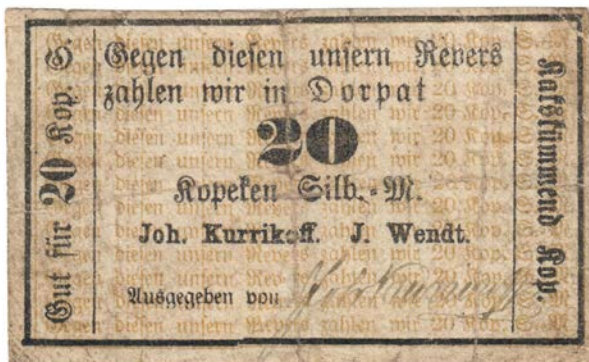 Gut für 20 Kop. S.
Gegen diesen unsern Revers
zahlen wir in Dorpat
20
Kopeken Silb.-M.
Joh. Kurrikoff. J. Wendt.
Ausgegeben von
Kakskümmend Kop.